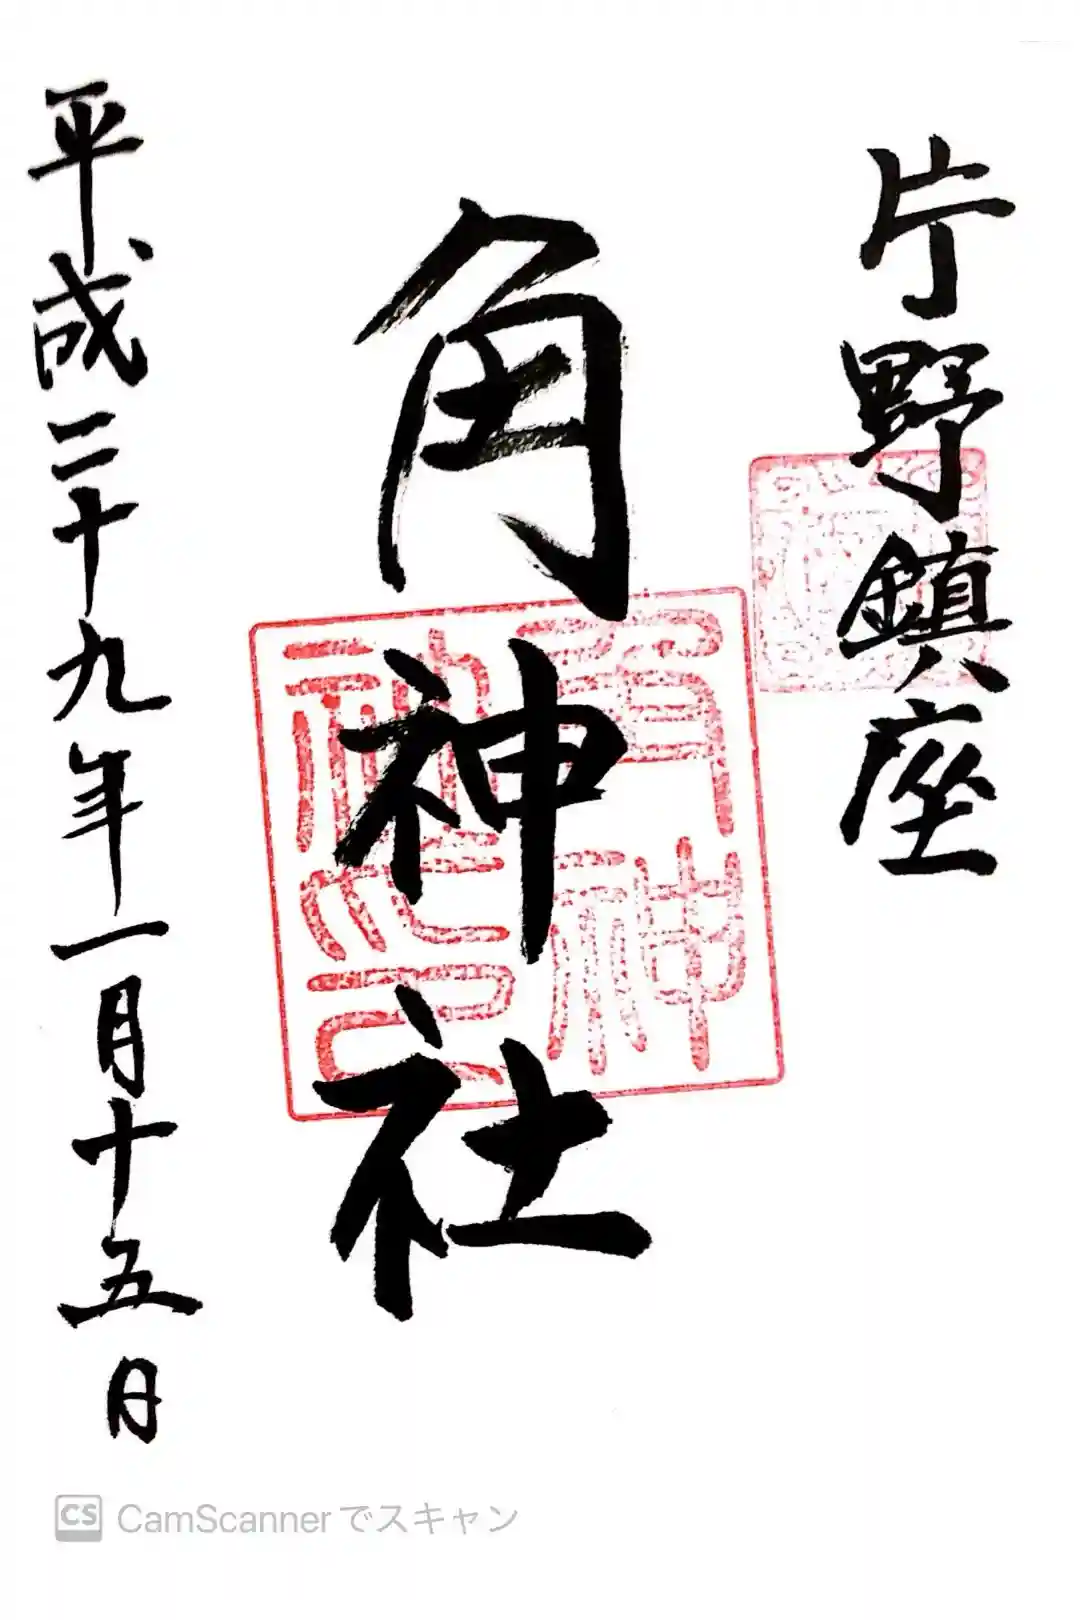 片野鎮座
角神社
平成二十九年一月十五日
角神
社之印
CS CamScannerでスキャン